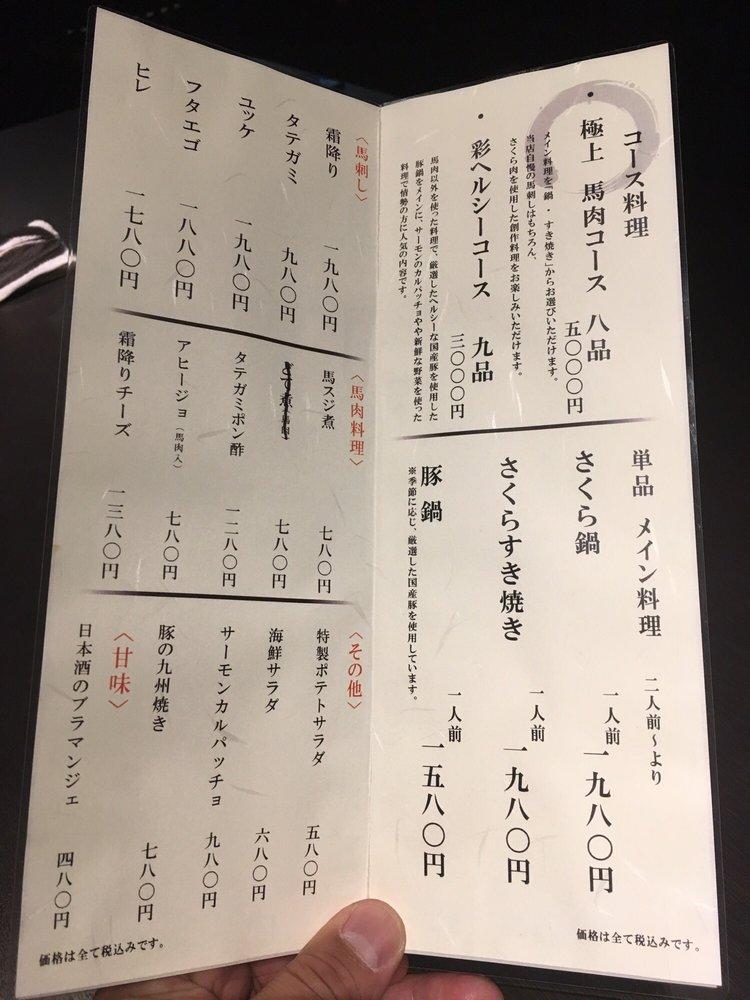 コース料理
・極上 馬肉コース 八品
五〇〇〇円
メイン料理を「鍋・すき焼き」からお選びいただけます。
当店自慢の馬刺しはもちろん、
さくら肉を使用した創作料理をお楽しみいただけます。
・彩ヘルシーコース 九品
三〇〇〇円
馬肉以外を使った料理で、厳選したヘルシーな国産豚を使用した
豚鍋をメインに、サーモンのカルパッチョやや新鮮な野菜を使った
料理で情勢の方に人気の内容です。
単品 メイン料理 二人前〜より
さくら鍋 一人前 一九八〇円
さくらすき焼き 一人前 一九八〇円
豚鍋 一人前 一五八〇円
※季節に応じ、厳選した国産豚を使用しています。
価格は全て税込みです。
〈馬刺し〉
霜降り 一九八〇円
タテガミ 九八〇円
ユッケ 一九八〇円
フタエゴ 一八八〇円
ヒレ 一七八〇円
〈馬肉料理〉
馬スジ煮 七八〇円
どて煮 七八〇円
タテガミポン酢 一二八〇円
アヒージョ（馬肉入） 七八〇円
霜降りチーズ 一三八〇円
〈その他〉
特製ポテトサラダ 五八〇円
海鮮サラダ 六八〇円
サーモンカルパッチョ 九八〇円
豚の九州焼き 七八〇円
〈甘味〉
日本酒のブラマンジェ 四八〇円
価格は全て税込みです。